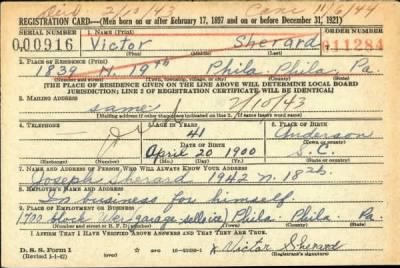 2/10/43 11/6/44
REGISTRATION CARD—(Men born on or after February 17, 1897 and on or before December 31, 1921)
SERIAL NUMBER 1. NAME (Print) ORDER NUMBER
000916 Victor Sherard 011284
2. PLACE OF RESIDENCE (Print)
1839 N. 19th Phila Phila. Pa.
[THE PLACE OF RESIDENCE GIVEN ON THE LINE ABOVE WILL DETERMINE LOCAL BOARD
JURISDICTION; LINE 2 OF REGISTRATION CERTIFICATE WILL BE IDENTICAL]
3. MAILING ADDRESS
same 2/10/43
[Mailing address if other than place indicated on line 2. If same insert word same]
4. TELEPHONE 5. AGE IN YEARS 6. PLACE OF BIRTH
41 Anderson
DATE OF BIRTH (Town or county)
April 20 1900 S.C.
(Exchange) (Number) (Mo.) (Day) (Yr.) (State or country)
7. NAME AND ADDRESS OF PERSON WHO WILL ALWAYS KNOW YOUR ADDRESS
Joseph Sherard 1942 N. 18th
8. EMPLOYER'S NAME AND ADDRESS
In business for himself.
9. PLACE OF EMPLOYMENT OR BUSINESS
1700 block Phila. Phila. Pa.
(Number and street or R. F. D. number) (Town) (County) (State)
I AFFIRM THAT I HAVE VERIFIED ABOVE ANSWERS AND THAT THEY ARE TRUE.
D. S. S. Form 1
(Revised 1-1-42) (over) x Victor Sherard
(Registrant's signature)